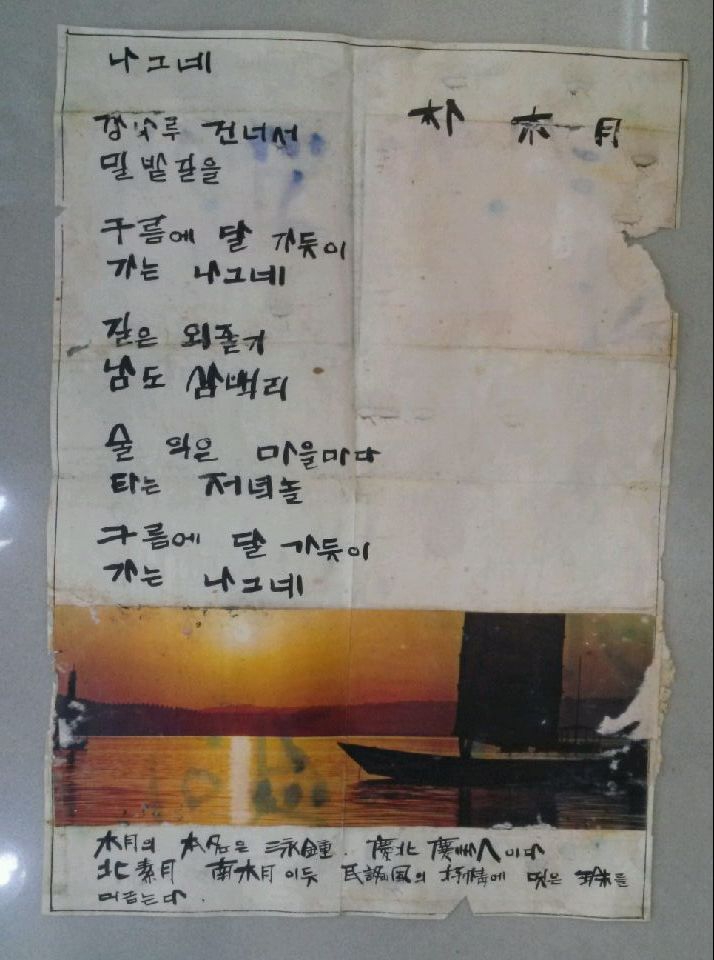 나그네
朴 木 月
강나루 건너서
밀밭 길을
구름에 달 가듯이
가는 나그네
길은 외줄기
남도 삼백리
술 익은 마을마다
타는 저녁놀
구름에 달 가듯이
가는 나그네
木月의 本名은 泳鍾. 慶北 慶州人이다
北素月 南木月이듯 民謠風의